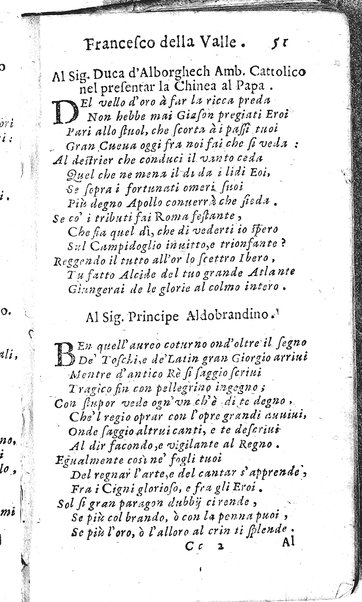 Francesco della Valle. 51
Al Sig. Duca d'Alborghech Amb. Cattolico
nel presentar la Chinea al Papa.
DEl vello d'oro à far la ricca preda
Non hebbe mai Giason pregiati Eroi
Pari allo stuol, che scorta à i passi tuoi
Gran Cueua oggi fra noi fai che si veda:
Al destrier che conduci il vanto ceda
Quel che ne mena il dì da i lidi Eoi,
Se sopra i fortunati omeri suoi
Più degno Apollo conuerrà che sieda.
Se co' i tributi fai Roma festante,
Che fia quel dì, che di vederti io spero
Sul Campidoglio inuitto, e trionfante?
Reggendo il tutto all'or lo scettro Ibero,
Tu fatto Alcide del tuo grande Atlante
Giungerai de le glorie al colmo intero.
Al Sig. Principe Aldobrandino.
BEn quell'aureo coturno ond'oltre il segno
De' Toschi, e de' Latin gran Giorgio arriui
Mentre d'antico Rè sì saggio scriui
Tragico fin con pellegrino ingegno;
Con stupor vede ogn'vn ch'è di te degno,
Che'l regio oprar con l'opre grandi auuiui,
Onde saggio altrui canti, e te descriui
Al dir facondo, e vigilante al Regno.
Egualmente così ne' fogli tuoi
Del regnar l'arte, e del cantar s'apprende,
Fra i Cigni glorioso, e fra gli Eroi.
Sol sì gran paragon dubbij ci rende,
Se più col brando, ò con la penna puoi,
Se più l'oro, ò l'alloro al crin ti splende.
Cc 2 Al